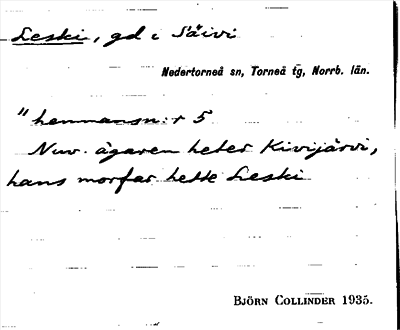 Leski, gd i Säivi
Nedertorneå sn, Torneå tg, Norrb. län.
" hemmansn:r 5
Nuv. ägaren heter Kivijärvi,
hans morfar hette Leski
Björn Collinder 1935.